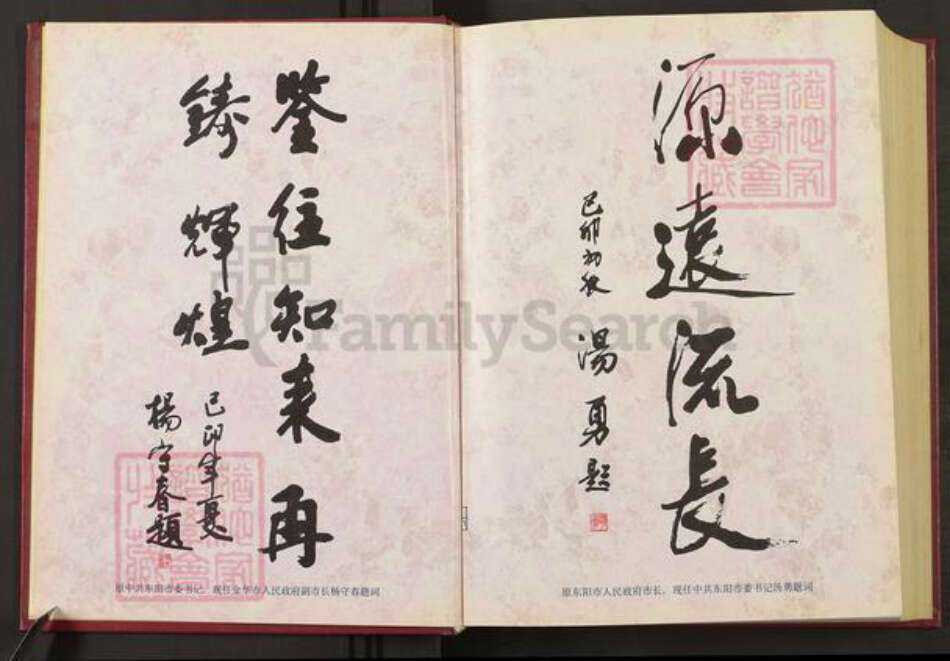 源遠流長
己卯初秋
湯勇題
原东阳市人民政府市长，现任中共东阳市委书记汤勇题词
鉴往知来再
鑄輝煌
己卯年夏
楊守春題
原中共东阳市委书记，现任金华市人民政府副市长杨守春题词
FamilySearch